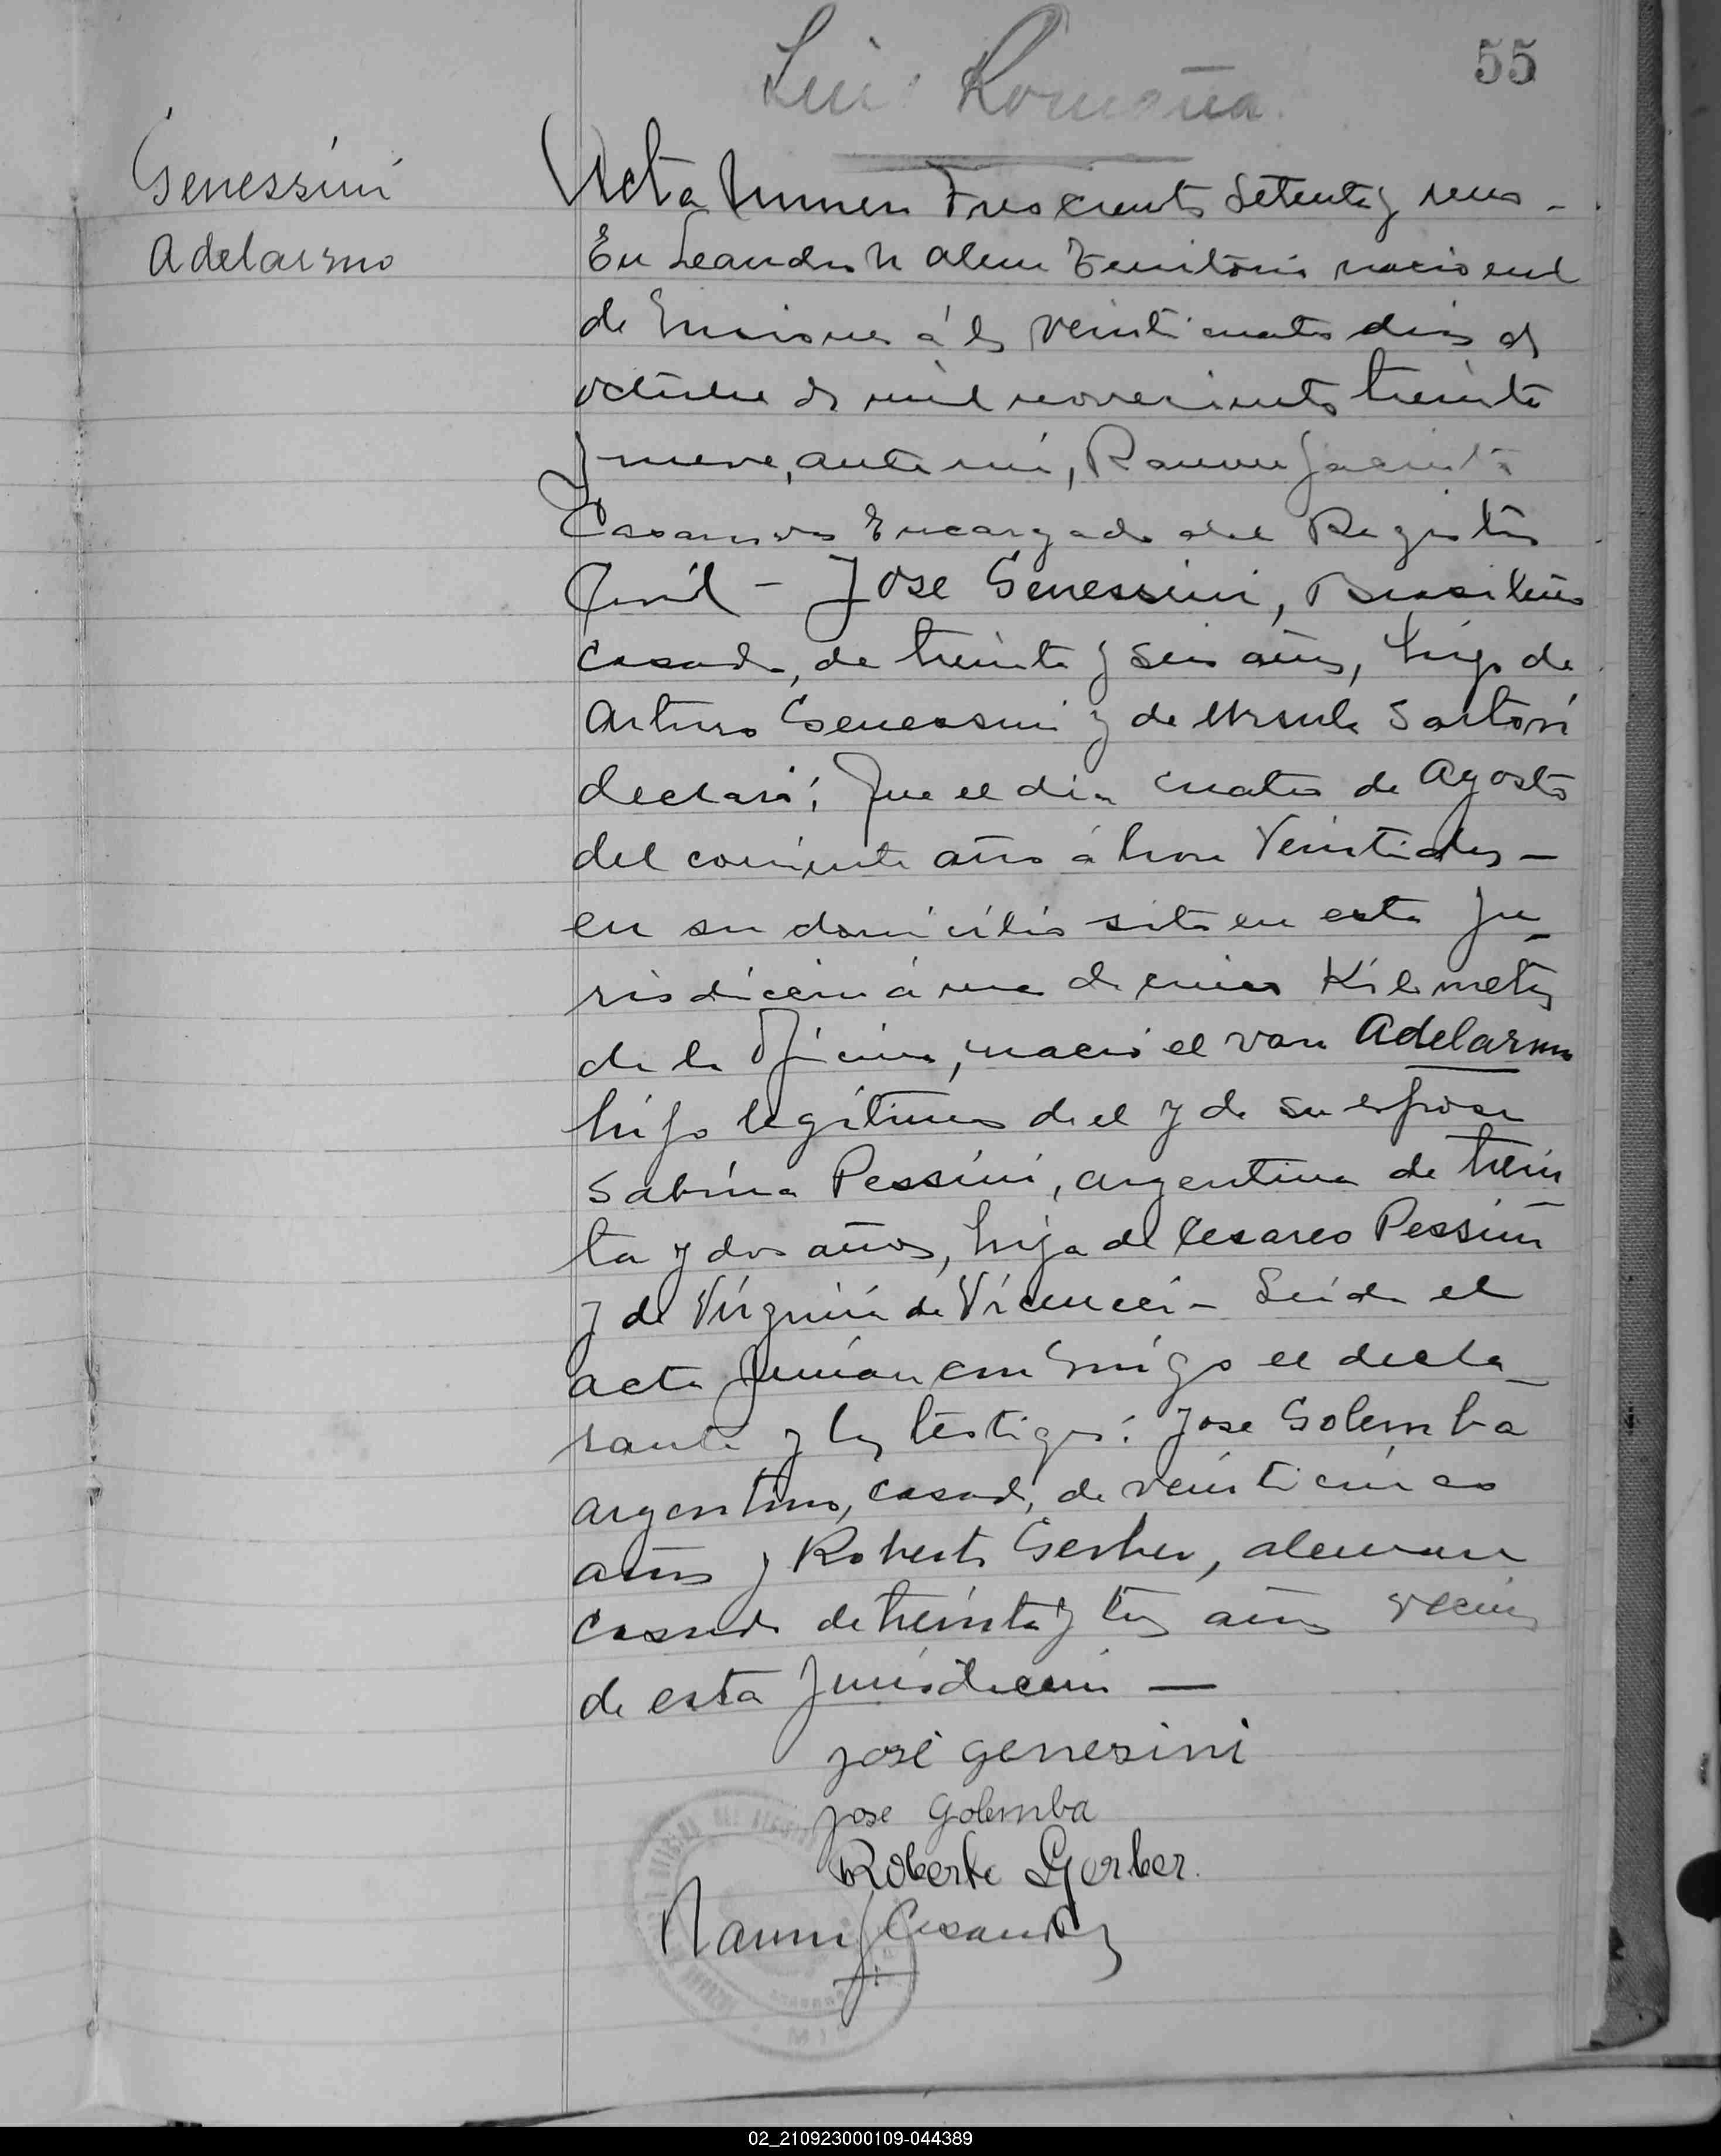 55
Luis Romaña.
Genessini
Adelarmo
Acta Numero Trescientos Setenta y uno -
En Leandro N Alem Territorio nacional
de Misiones á los veinticuatro dias de
octubre de mil novecientos treinta
y nueve, ante mi, Ramon Jacinto
Casanova Encargado del Registro
Civil - Jose Genessini, Brasileño
casado, de treinta y seis años, hijo de
Arturo Genessini y de Ursula Sartori
declaró; Que el dia cuatro de Agosto
del corriente año á hora Veintidos -
en su domicilio sito en esta Ju_
risdiccion á unos Kilometros
de la Oficina, nació el varon Adelarmo
hijo legitimo de el y de su esposa
Sabina Pessini, argentina de trein_
ta y dos años, hija de Cesareo Pessini
y de Virginia de Vicenci - Leida el
acta firman conmigo el decla_
rante y los testigos: Jose Golemba
argentino, casado, de veinticinco
años y Roberto Gerber, aleman
casado de treinta y tres años vecinos
de esta Jurisdiccion —
José Genesini
Jose Golemba
Roberto Gerber.
Ramon J Casanova
02_210923000109-044389